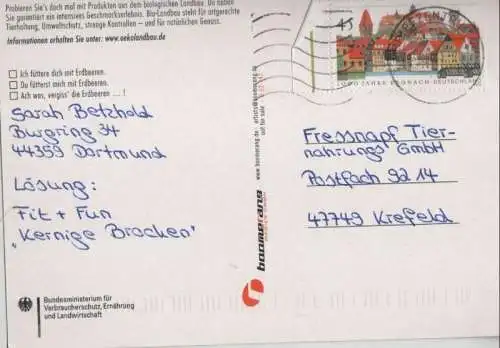 Probieren Sie's doch mal mit Produkten aus dem biologischen Landbau. Da haben
Sie garantiert ein intensives Geschmackserlebnis. Bio-Landbau steht für artgerechte
Tierhaltung, Umweltschutz, strenge Kontrollen – und für natürlichen Genuss.
Informationen erhalten Sie unter: www.oekolandbau.de
Ich füttere dich mit Erdbeeren.
Du fütterst mich mit Erdbeeren.
Ach was, vergiss' die Erdbeeren ... !
Sarah Betzhold
Burgring 34
44359 Dortmund
Lösung:
Fit + Fun
„Kernige Brocken"
Bundesministerium für
Verbraucherschutz, Ernährung
und Landwirtschaft
www.boomerang.de
not for sale
boomerang
45
1000 JAHRE KRONACH DEUTSCHLAND
Fressnapf Tier-
nahrungs GmbH
Postfach 92 14
47749 Krefeld